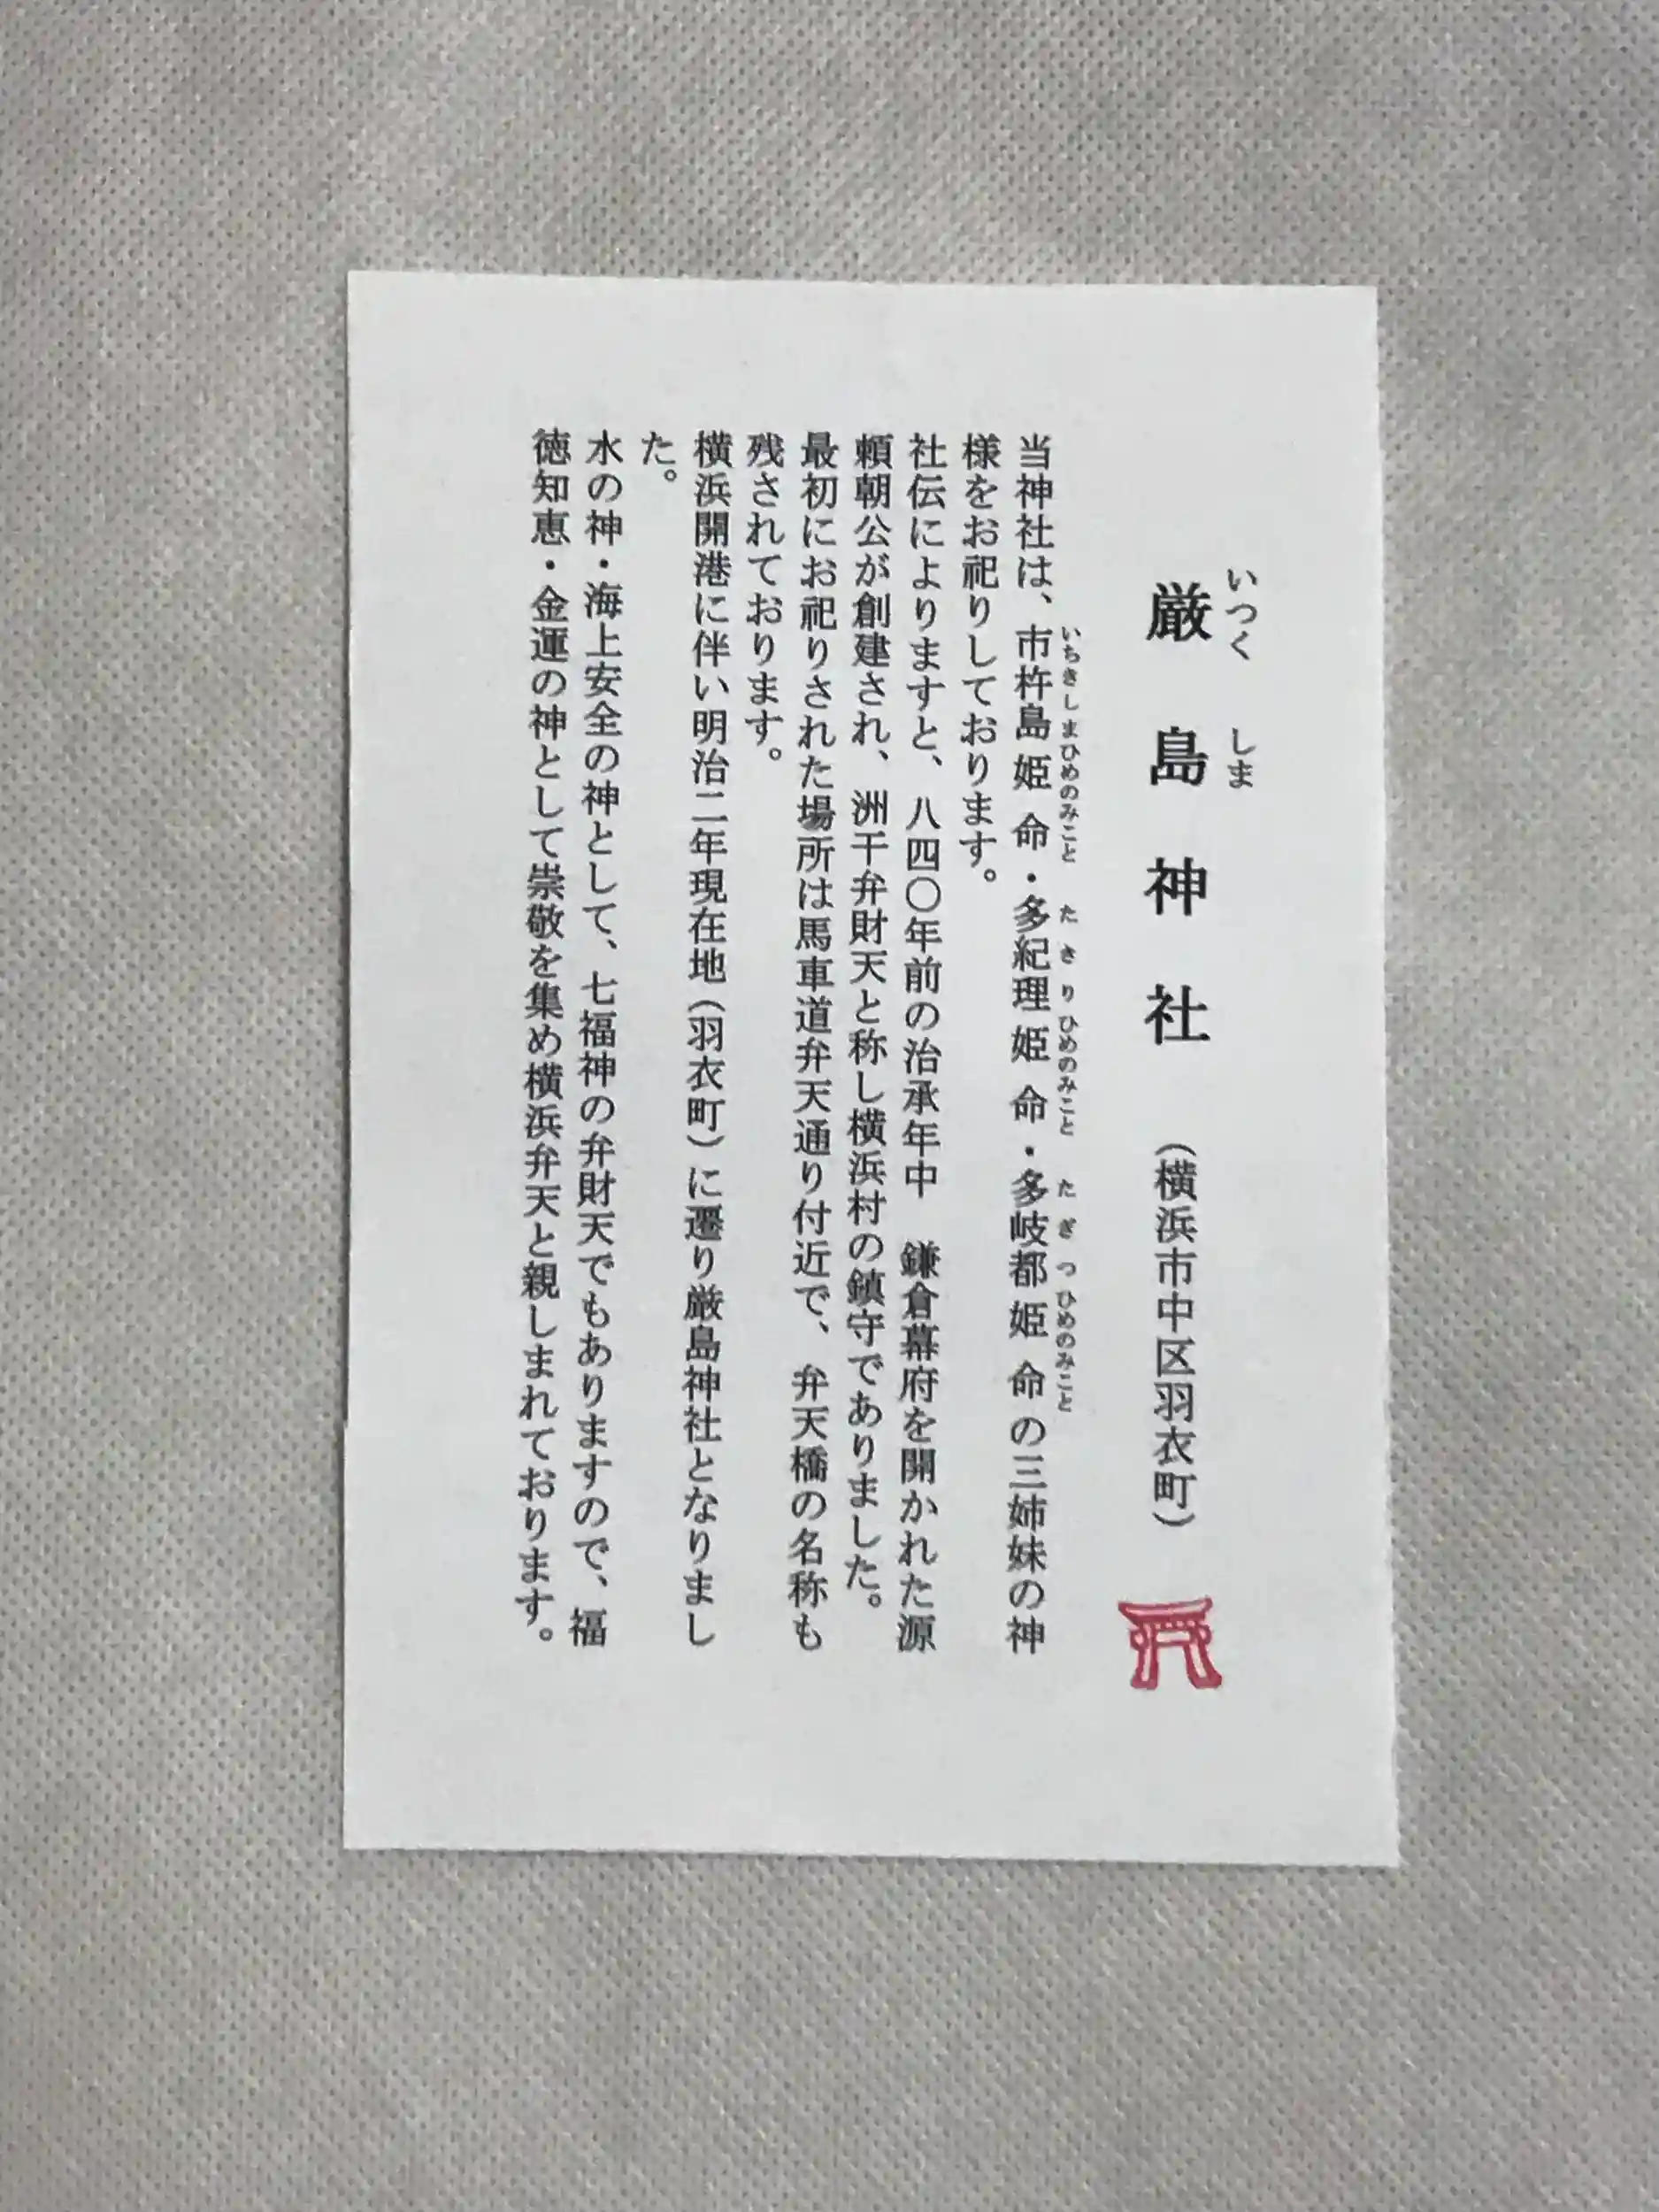 厳島神社 （横浜市中区羽衣町）
いつくしま
当神社は、市杵島姫命・多紀理姫命・多岐都姫命の三姉妹の神
いちきしまひめのみこと たきりひめのみこと たぎつひめのみこと
様をお祀りしております。
社伝によりますと、八四〇年前の治承年中　鎌倉幕府を開かれた源
頼朝公が創建され、洲干弁財天と称し横浜村の鎮守でありました。
最初にお祀りされた場所は馬車道弁天通り付近で、弁天橋の名称も
残されております。
横浜開港に伴い明治二年現在地（羽衣町）に遷り厳島神社となりまし
た。
水の神・海上安全の神として、七福神の弁財天でもありますので、福
徳知恵・金運の神として崇敬を集め横浜弁天と親しまれております。